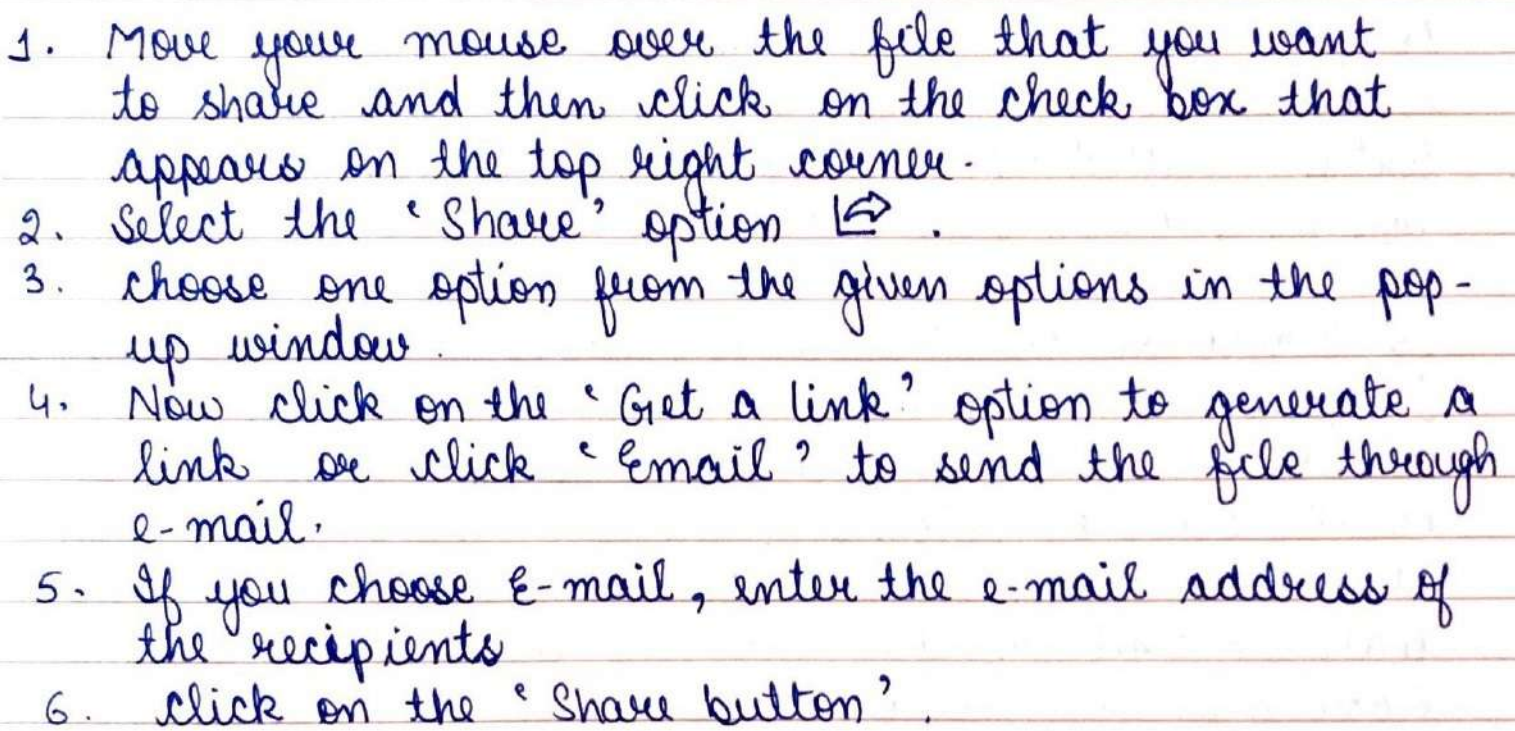 1. Move your mouse over the file that you want
to share and then click on the check box that
appears on the top right corner.
2. Select the 'Share' option .
3. choose one option from the given options in the pop-
up window.
4. Now click on the 'Get a link' option to generate a
link or click 'Email' to send the file through
e-mail.
5. If you choose E-mail, enter the e-mail address of
the recipients
6. click on the 'Share button'.